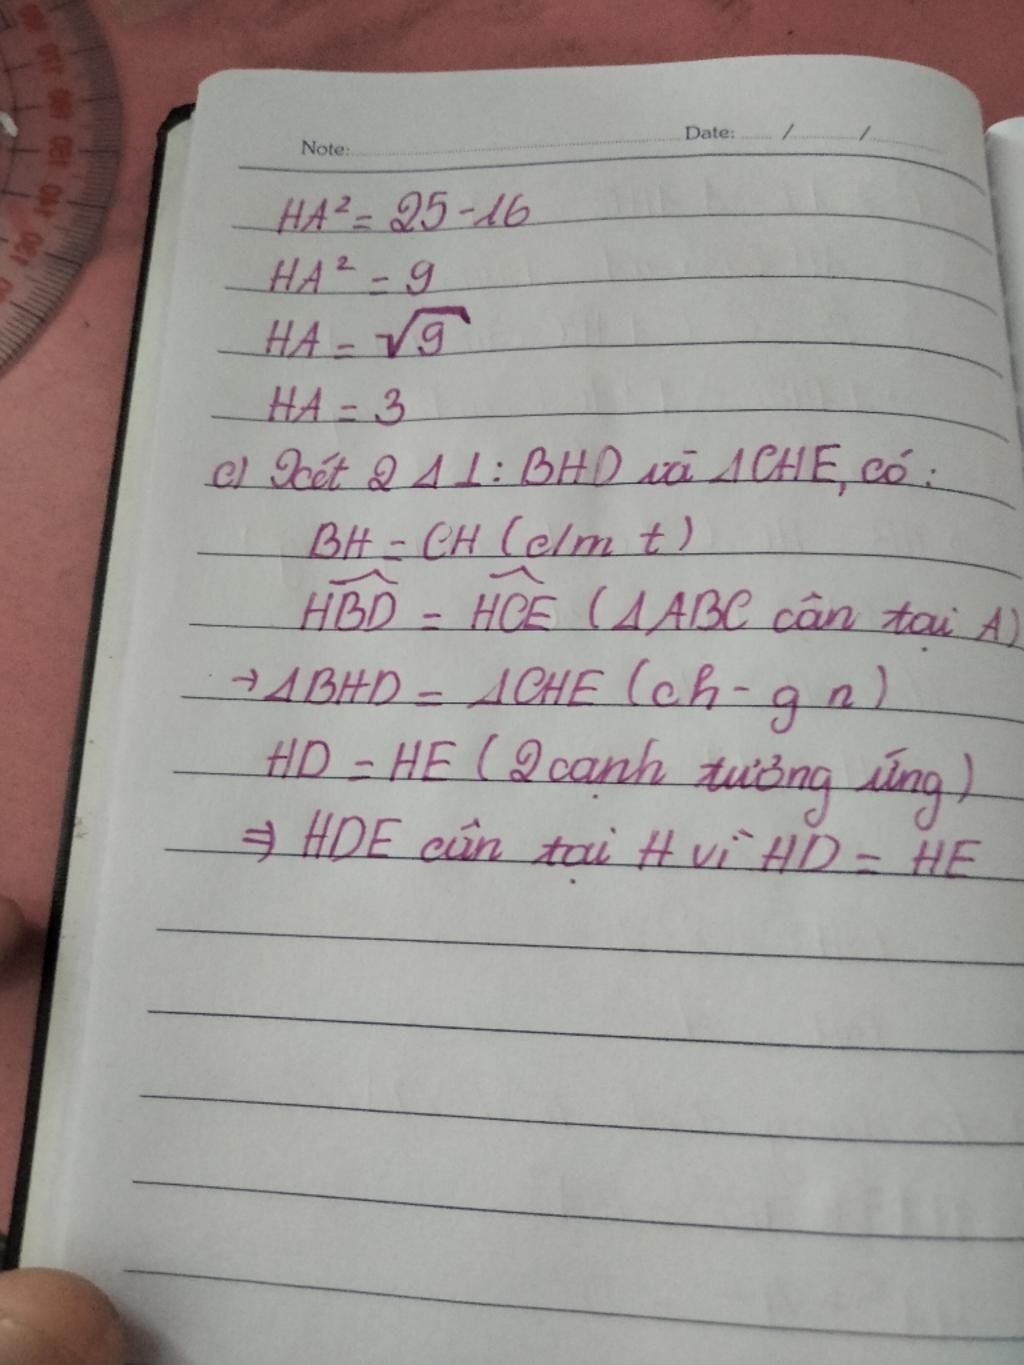 Note: Date: / /
HA² = 25 - 16
HA² = 9
HA = √9
HA = 3
c) Xét 2 Δ ⊥: BHD và ΔCHE, có:
BH = CH (c/m t)
\widehat{HBD} = \widehat{HCE} (ΔABC cân tại A)
→ ΔBHD = ΔCHE (ch - g n)
HD = HE (2 cạnh tương ứng)
⇒ HDE cân tại H vì HD = HE